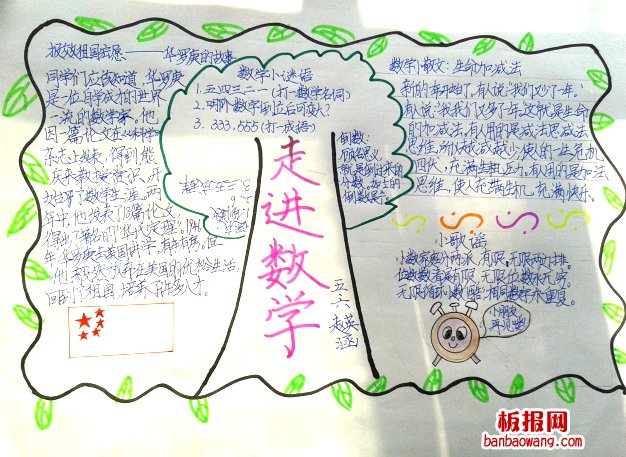 报效祖国宏愿——华罗庚的故事
同学们应该知道,华罗庚
是一位自学成才的世界
一流的数学家。他
因一篇论文在
杂志上发表,得到熊
庆来教授赏识,开
年中,他发表了
得出了著名的“华氏定理”
他却放弃在美国的优裕生活,
回到了祖国,培养了许多人才。
数学小谜语
1.三四三二一(打一数学名词)
2.哪个数字倒立后可变大?
3.333,555(打一成语)
倒数:
顾名思义,
就是倒过来的
分数,
倒数是3。
走进数学
五六 赵英涵
数学小散文:生命加减法
新的一年开始了,有人说:“我们又少了一年。”
有人说:“我们又多了一年。”这就是生命
的加减法,有人用的是减法思
维,
四伏,充满生机压力。有人用的是加法
思维,使人充满生机,充满快乐。
小歌谣
小数家族分两派,有限、无限两边排。
位数数清是有限,无限位数永无穷。
无限循环小数酷,相同数字永重复。
小朋友
再见啦!
板报网
banbaowang.com